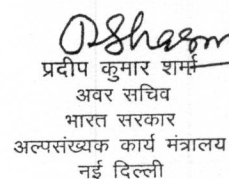 PSharm
प्रदीप कुमार शर्मा
अवर सचिव
भारत सरकार
अल्पसंख्यक कार्य मंत्रालय
नई दिल्ली